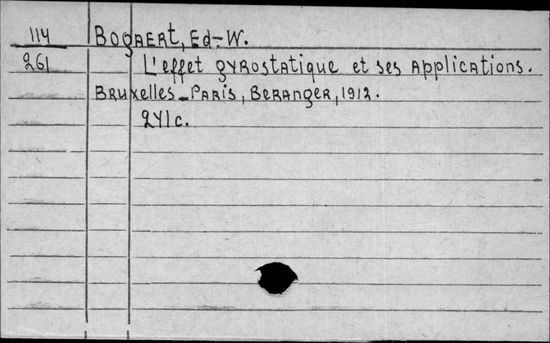 114 Bogaert, Ed-W.
261 L'effet gyrostatique et ses applications.
Bruxelles-Paris, Beranger, 1912.
241 c.